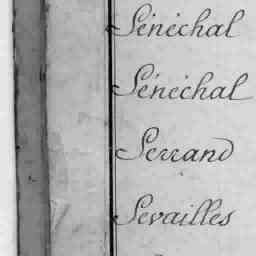 Sénéchal
Sénéchal
Serrand
Sevailles